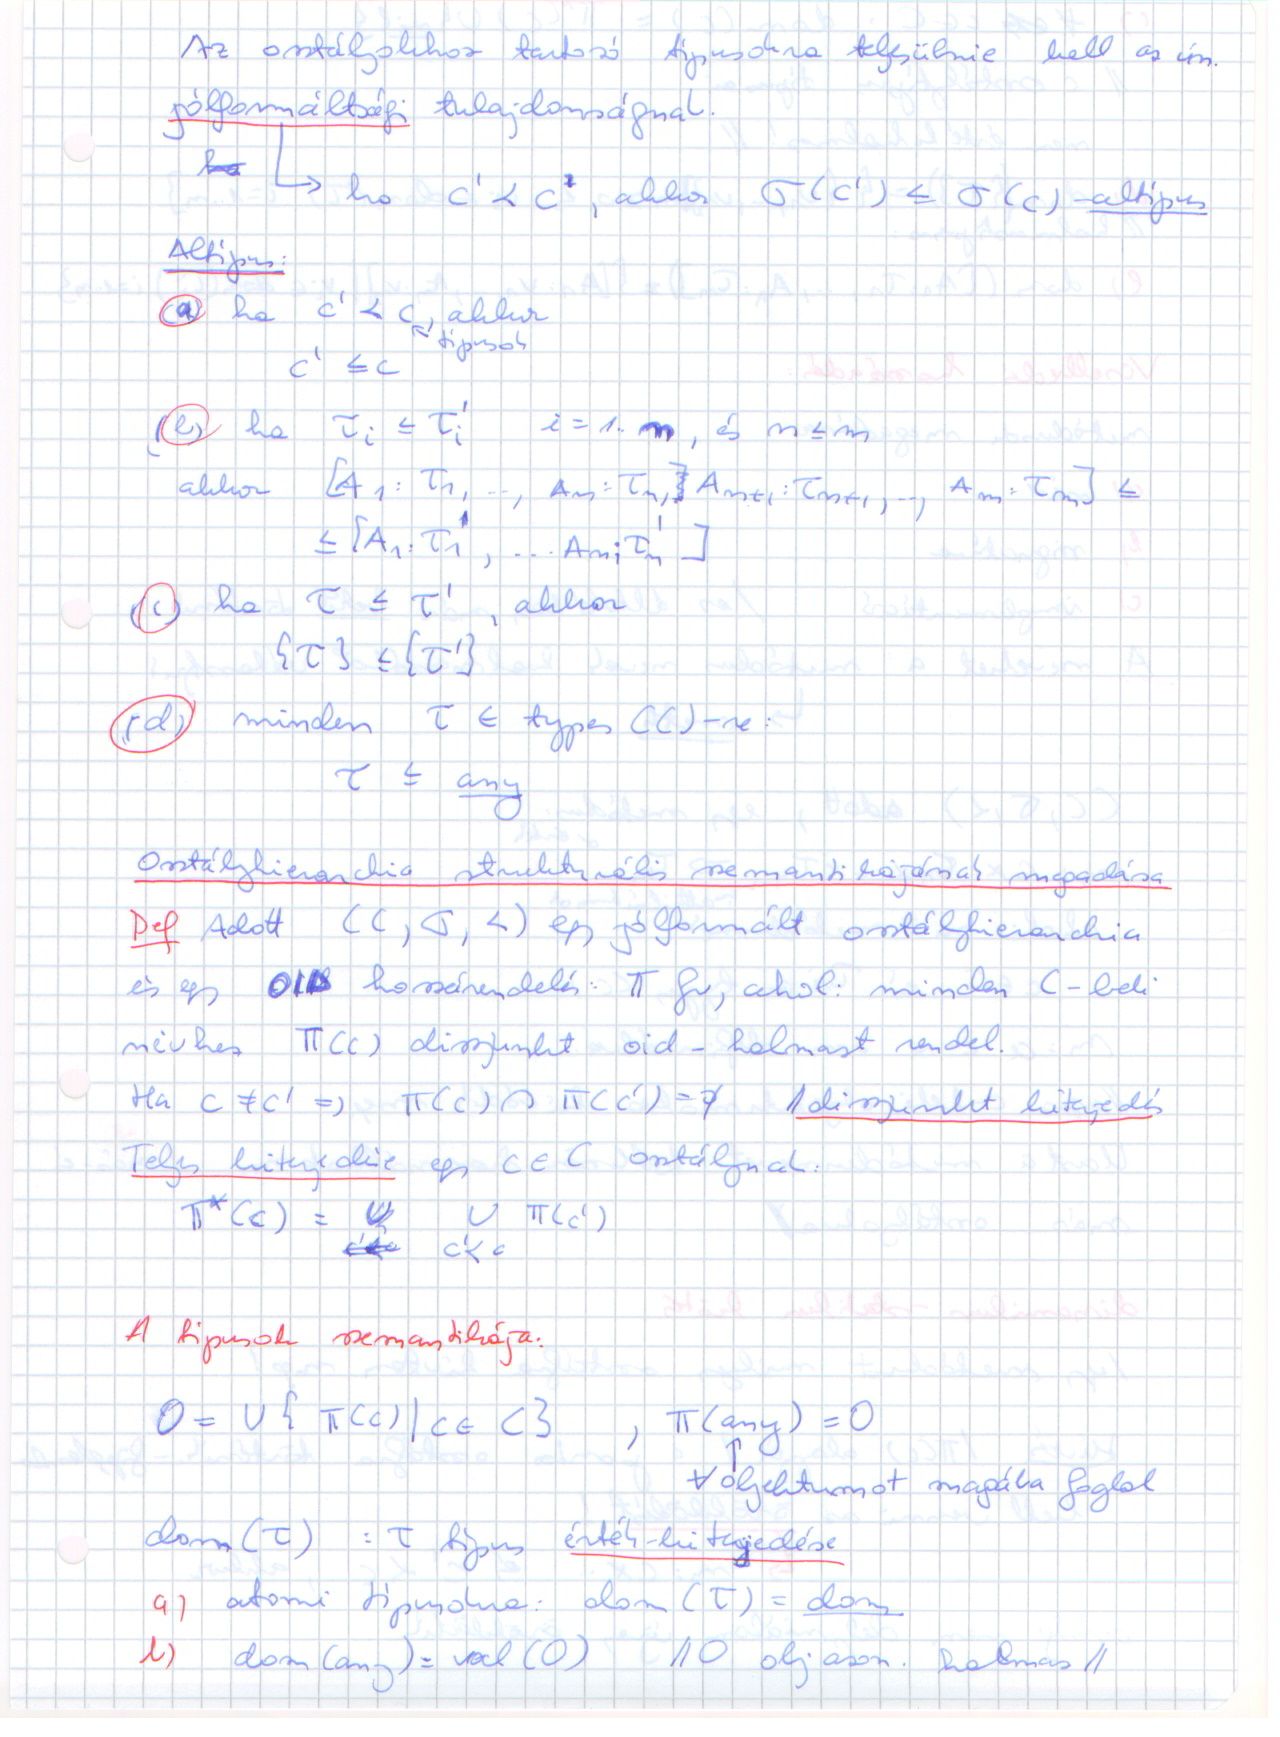 Az osztályokhoz tartozó típusokra teljesülnie kell az ún.
jólformáltsági tulajdonságnak.
ha c' ≺ c, akkor σ(c') ≤ σ(c) - altípus
Altípus:
(a) ha c' ≺ c, akkor
típusok
c' ≤ c
(b) ha τi ≤ τi' i = 1..n, és n ≤ m
akkor [A1: τ1, ..., An: τn, An+1: τn+1, ..., Am: τm] ≤
≤ [A1: τ1', ... An: τn']
(c) ha τ ≤ τ', akkor
{τ} ≤ {τ'}
(d) minden τ ∈ types(C)-re:
τ ≤ any
Osztályhierarchia strukturális szemantikájának megadása
Def Adott (C, σ, ≺) egy jólformált osztályhierarchia
és egy OID hozzárendelés: π fv, ahol: minden C-beli
névhez π(c) diszjunkt oid-halmazt rendel.
Ha c ≠ c' => π(c) ∩ π(c') = ∅ // diszjunkt kiterjedés
Teljes kiterjedése egy c ∈ C osztálynak:
π*(c) = ∪ π(c')
c' ≺ c
A típusok szemantikája:
O = ∪{ π(c) | c ∈ C } , π(any) = O
∀ objektumot magába foglal
dom(τ) : τ típus érték-kiterjedése
a) atomi típusokra: dom(τ) = dom
b) dom(any) = val(O) // O obj. azon. halmaz //